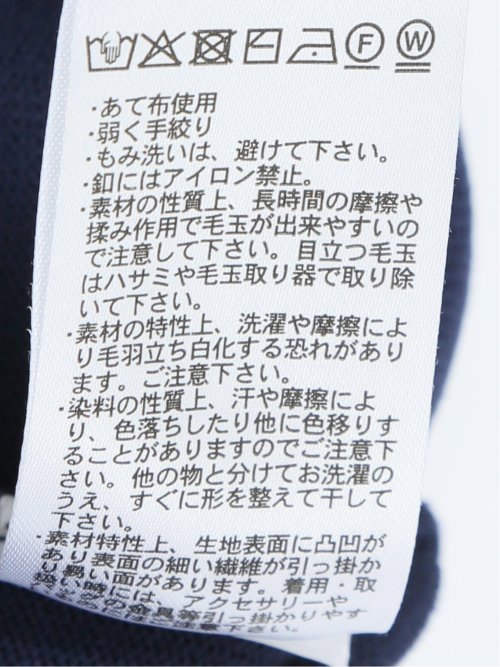 F W
・あて布使用
・弱く手絞り
・もみ洗いは、避けて下さい。
・釦にはアイロン禁止。
・素材の性質上、長時間の摩擦や
揉み作用で毛玉が出来やすいの
で注意して下さい。目立つ毛玉
はハサミや毛玉取り器で取り除
いて下さい。
・素材の特性上、洗濯や摩擦によ
り毛羽立ち白化する恐れがあり
ます。ご注意下さい。
・染料の性質上、汗や摩擦によ
り、色落ちしたり他に色移りす
ることがありますのでご注意下
さい。他の物と分けてお洗濯の
うえ、すぐに形を整えて干して
下さい。
・素材特性上、生地表面に凸凹が
あり表面の細い繊維が引っ掛か
り易い面があります。着用・取
扱い時には、アクセサリーや
金具等引っ掛かりやす
注意下さい。